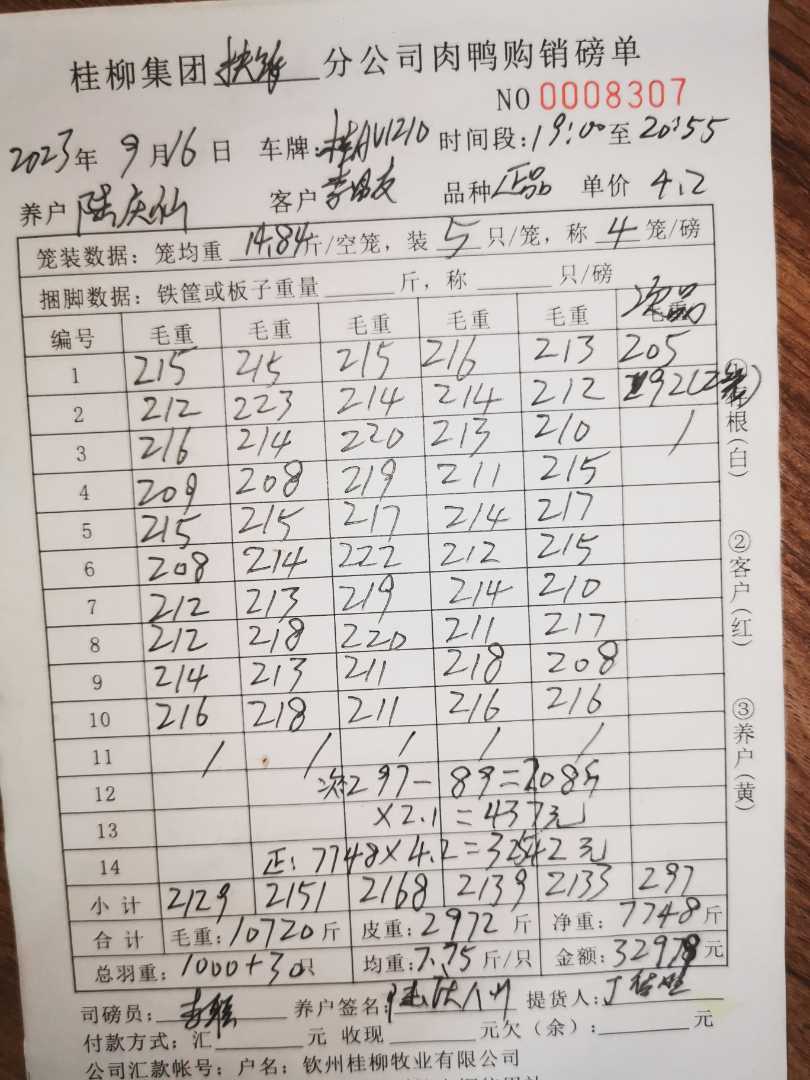 桂柳集团扶绥分公司肉鸭购销磅单
NO 0008307
2023年 9月16日 车牌:桂AU1210 时间段:19:00至20:55
养户 陆庆仙 客户 李 友 品种 正品 单价 4.2
笼装数据:笼均重 14.84斤/空笼,装 5 只/笼,称 4 笼/磅
捆脚数据:铁筐或板子重量 斤,称 只/磅
编号 毛重 毛重 毛重 毛重 毛重 次品
1 215 215 215 216 213 205
2 212 223 214 214 212 92(2笼)
3 216 214 220 213 210 /
4 209 208 219 211 215
5 215 215 217 214 217
6 208 214 222 212 215
7 212 213 219 214 210
8 212 218 220 211 217
9 214 213 211 218 208
10 216 218 211 216 216
11 / / / / /
12 次297-89=208斤
13 ×2.1=437元
14 正:7748×4.2=32542元
小计 2129 2151 2168 2139 2133 297
合计 毛重:10720斤 皮重:2972斤 净重:7748斤
总羽重:1000+30只 均重:7.75斤/只 金额:32978元
司磅员: 养户签名: 提货人:
付款方式:汇 元 收现 元欠(余): 元
公司汇款帐号:户名:钦州桂柳牧业有限公司
根(白)
②客户(红)
③养户(黄)